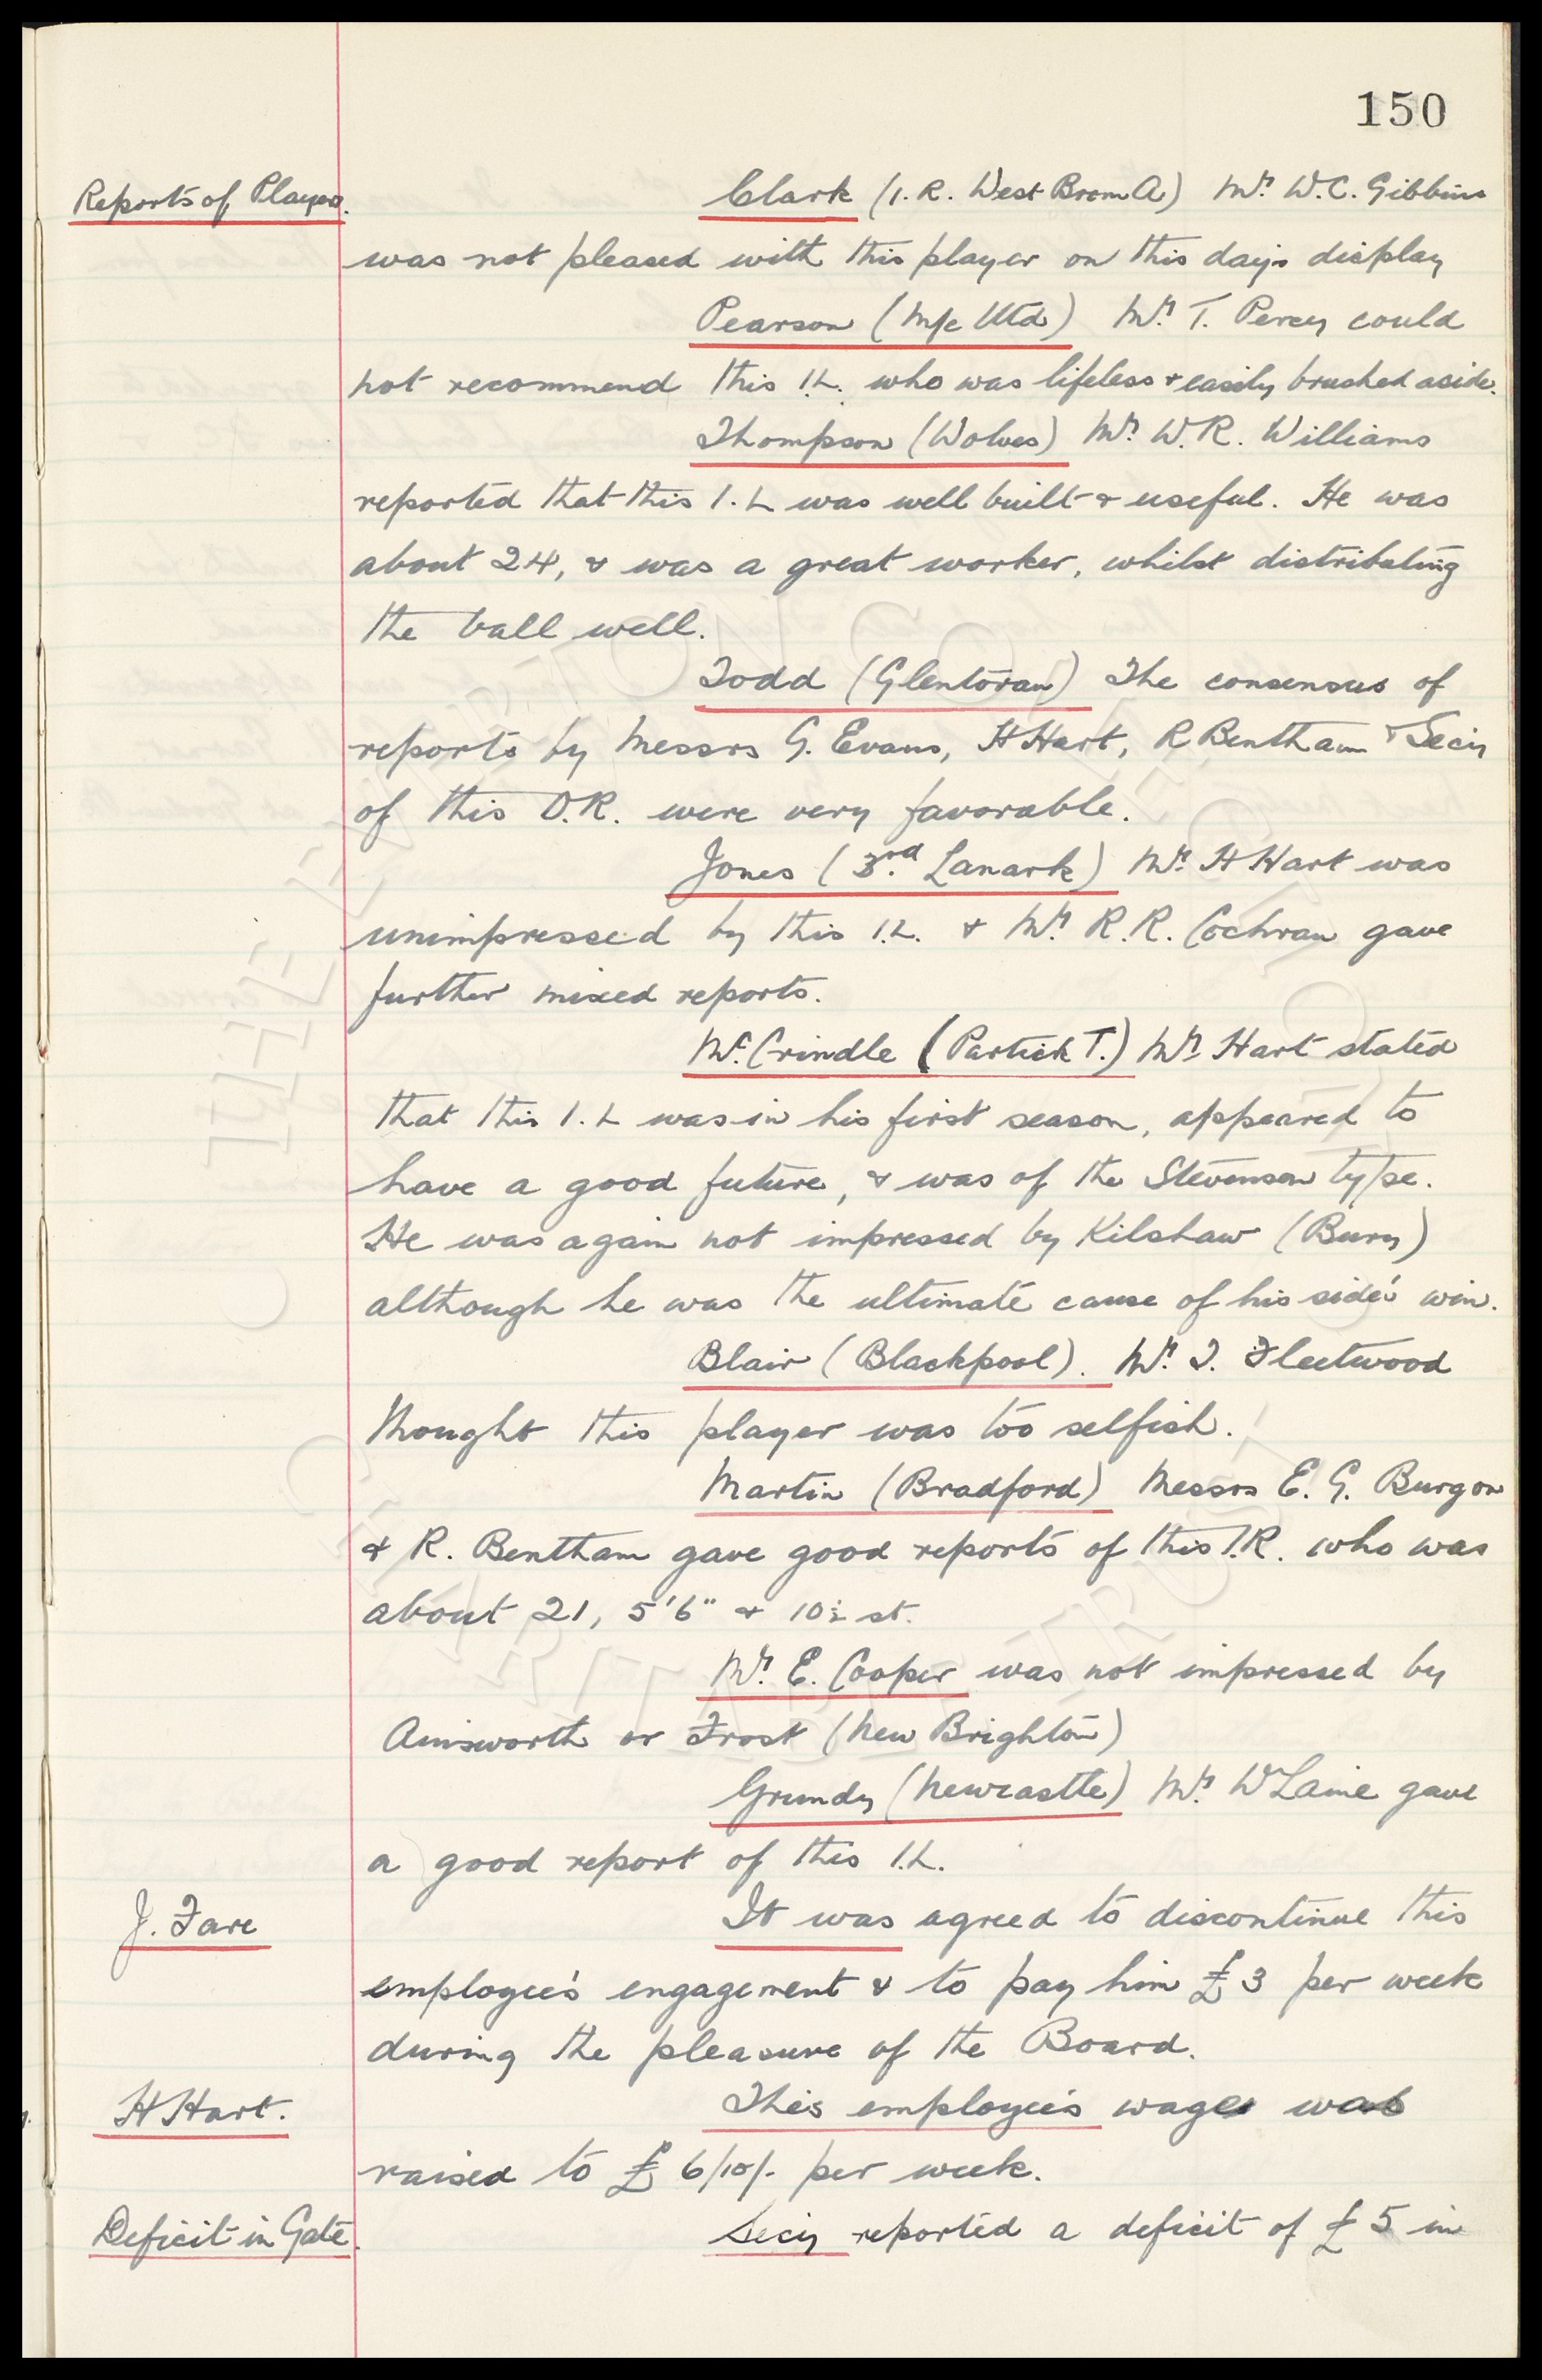 150
Reports of Players. Clark (I.R. West Brom A) Mr. W.C. Gibbins
was not pleased with this player on this day's display
Pearson (M/c Utd) Mr. T. Percy could
not recommend this I.L. who was lifeless & easily brushed aside.
Thompson (Wolves) Mr. W.R. Williams
reported that this I.L was well built & useful. He was
about 24, & was a great worker, whilst distributing
the ball well.
Todd (Glentoran) The consensus of
reports by Messrs G. Evans, H Hart, R Bentham & Secy
of this O.R. were very favorable.
Jones (3rd. Lanark) Mr. H Hart was
unimpressed by this I.L. & Mr. R.R. Cochran gave
further mixed reports.
Mc.Crindle (Partick T.) Mr. Hart stated
that this I.L was in his first season, appeared to
have a good future, & was of the Stevenson type.
He was again not impressed by Kilshaw (Bury)
although he was the ultimate cause of his side's win.
Blair (Blackpool). Mr. T. Fleetwood
thought this player was too selfish.
Martin (Bradford) Messrs E. G. Burgon
& R. Bentham gave good reports of this I.R. who was
about 21, 5'6" & 10½ st.
Mr. E. Cooper was not impressed by
Ainsworth or Frost (New Brighton)
Grundy (Newcastle) Mr. W Laine gave
a good report of this I.L.
J. Fare It was agreed to discontinue this
employee's engagement & to pay him £3 per week
during the pleasure of the Board.
H Hart. This employee's wage was
raised to £6/10/- per week.
Deficit in Gate. Secy reported a deficit of £5 in